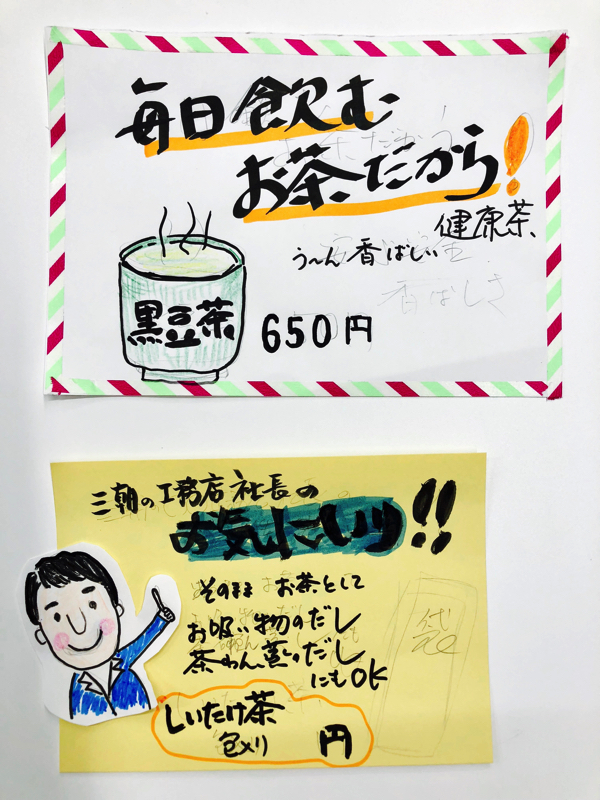 毎日飲む
お茶だから!
健康茶
う〜ん香ばしい
香ばしさ
黒豆茶
650円
三朝の工務店社長の
お気にいり!!
そのまま お茶として
お吸い物のだし
茶わん蒸しのだし
にもOK
しいたけ茶
円